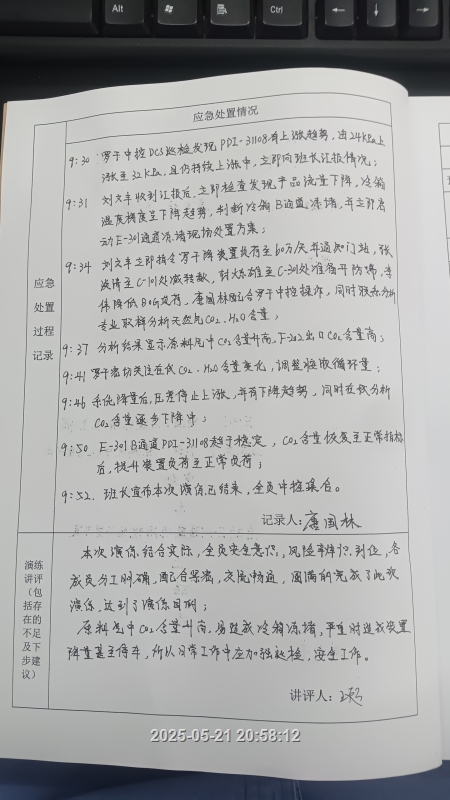 Alt
Ctrl
应急处置情况
应急
处置
过程
记录
9:30 罗宇中控DCS巡检发现PDI-31108有上涨趋势,由24KPa上
涨至32KPa,且仍持续上涨中,立即向班长汇报情况;
9:31 刘文丰收到汇报后,立即检查发现产品流量下降,冷箱
温度梯度呈下降趋势,判断冷箱B通道冻堵,并立即启
动E-301通道冻堵现场处置方案;
9:34 刘文丰立即指令罗宇降装置负荷至60万/天并通知门站,张
清至C-101处减转数,封
体降低BOG负荷,唐国林配合罗宇中控操作,同时联系分析
专业取样分析天然气CO2、H2O含量;
9:37 分析结果显示原料气中CO2含量升高,F-202出口CO2含量高;
9:41 罗宇密切关注在线CO2、H2O含量变化,调整循环量;
9:46 系统降量后,压差停止上涨,并有下降趋势,同时在线分析
CO2含量逐步下降中;
9:50 E-301B通道PDI-31108趋于稳定,CO2含量恢复至正常指标
后,提升装置负荷至正常负荷;
9:52. 班长宣布本次演练已结束,全员中控集合。
记录人:唐国林
演练
讲评
(包
括存
在的
不足
及下
步建
议)
本次演练结合实际,全员安全意识,风险辨识到位,各
成员分工明确,配合默契,交流畅通,圆满的完成了此次
演练,达到了演练目的;
原料气中CO2含量升高,易造成冷箱冻堵,严重时造成装置
降量甚至停车,所以日常工作中应加强巡检,安全工作。
讲评人:
2025-05-21 20:58:12